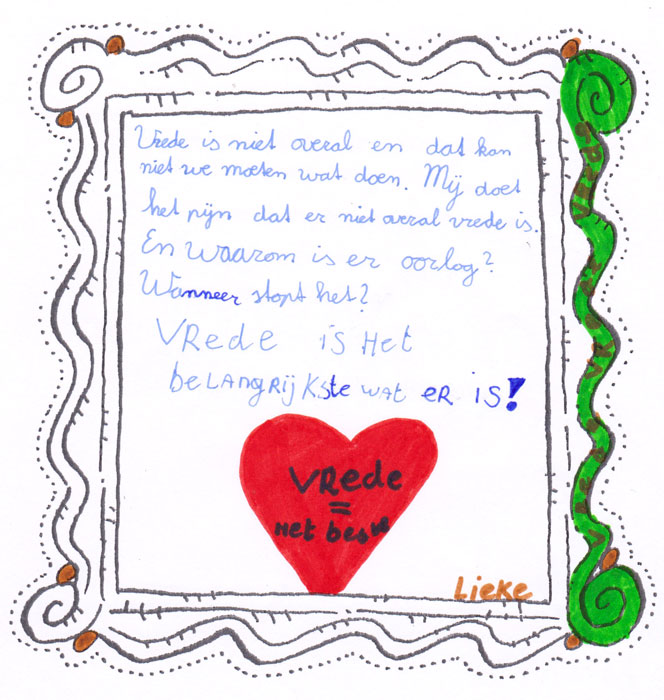 Vrede is niet overal en dat kan
niet we moeten wat doen. Mij doet
het pijn dat er niet overal vrede is.
En waarom is er oorlog?
Wanneer stopt het?
VRede iS Het
beLANgRijKste wAt eR iS!
VRede
=
Het beste
Lieke